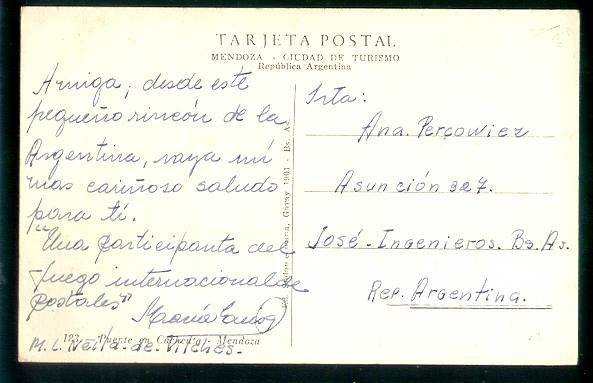 TARJETA POSTAL
MENDOZA - CIUDAD DE TURISMO
República Argentina
Amiga, desde este
pequeño rincón de la
Argentina, vaya mi
mas cariñoso saludo
para ti.
"Una participanta del
Juego internacional de
Postales"
María
183 - Puente en Cacheuta - Mendoza
M. L. Neila de Vilches.
Garay 1901 - Bs. As.
Srta:
Ana. Percowiez
Asunción 327.
José - Ingenieros. Bs. As.
Rep. Argentina.